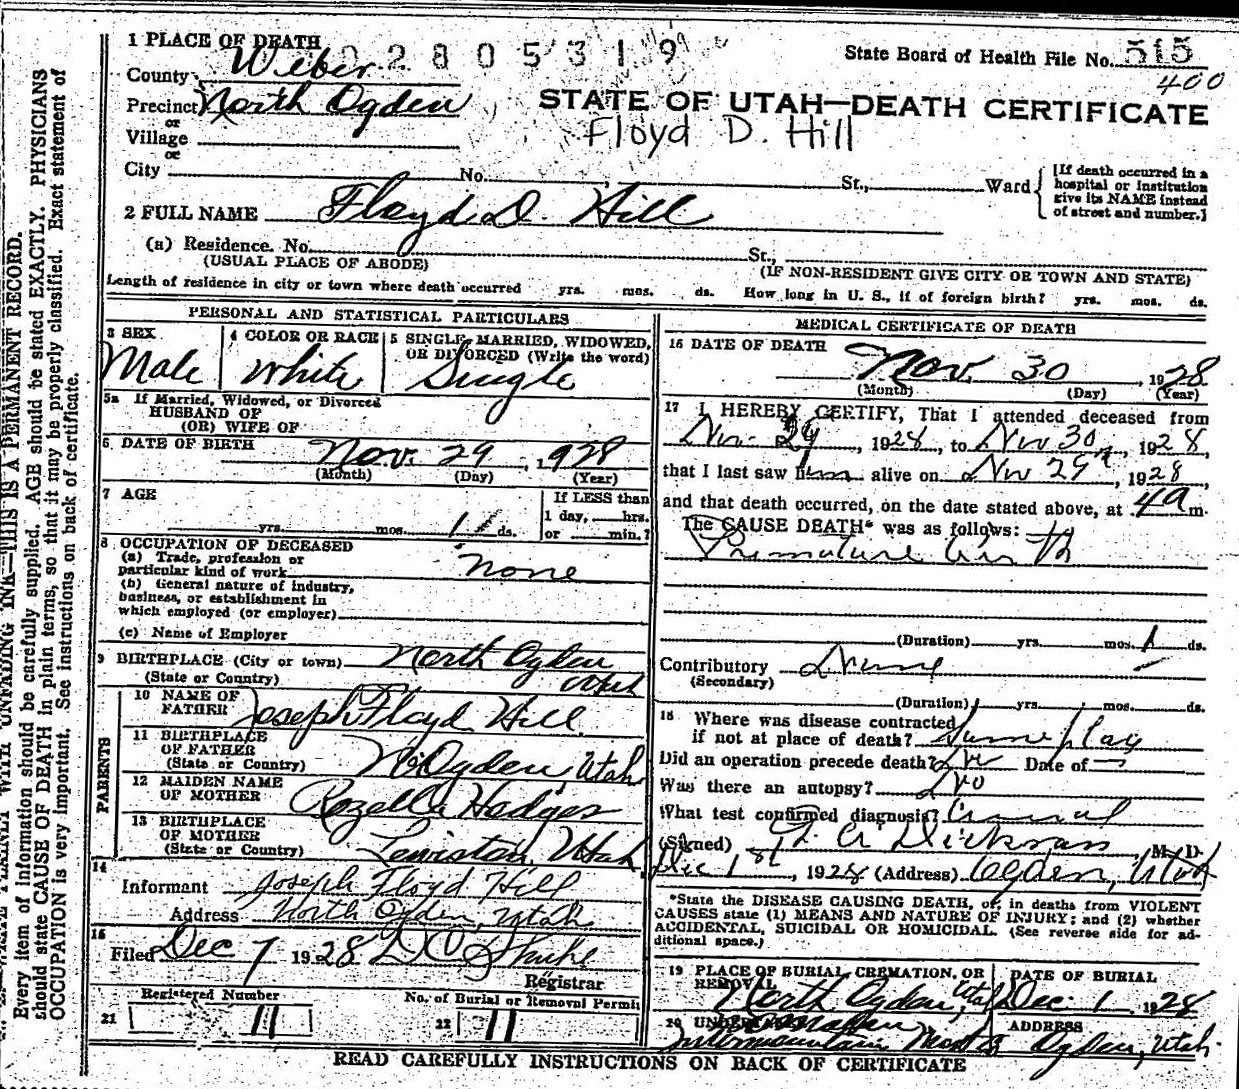 1 PLACE OF DEATH
02805319
State Board of Health File No. 515
400
County Weber
Precinct North Ogden
or
Village
or
City No. St., Ward
STATE OF UTAH—DEATH CERTIFICATE
Floyd D. Hill
[If death occurred in a
hospital or institution
give its NAME instead
of street and number.]
2 FULL NAME Floyd D. Hill
(a) Residence. No. St.,
(USUAL PLACE OF ABODE) (IF NON-RESIDENT GIVE CITY OR TOWN AND STATE)
Length of residence in city or town where death occurred yrs. mos. ds. How long in U. S., if of foreign birth? yrs. mos. ds.
PERSONAL AND STATISTICAL PARTICULARS
3 SEX 4 COLOR OR RACE 5 SINGLE, MARRIED, WIDOWED,
OR DIVORCED (Write the word)
Male White Single
5a If Married, Widowed, or Divorced
HUSBAND OF
(OR) WIFE OF
6 DATE OF BIRTH Nov. 29, 1928
(Month) (Day) (Year)
7 AGE If LESS than
yrs. mos. 1 ds. 1 day, hrs.
or min.?
8 OCCUPATION OF DECEASED
(a) Trade, profession or
particular kind of work None
(b) General nature of industry,
business, or establishment in
which employed (or employer)
(c) Name of Employer
9 BIRTHPLACE (City or town) North Ogden
(State or Country) Utah
PARENTS
10 NAME OF
FATHER Joseph Floyd Hill
11 BIRTHPLACE
OF FATHER
(State or Country) No. Ogden, Utah
12 MAIDEN NAME
OF MOTHER Rozella Hodges
13 BIRTHPLACE
OF MOTHER
(State or Country) Lewiston, Utah
14
Informant Joseph Floyd Hill
Address North Ogden, Utah
15
Filed Dec 7 1928
Registrar
Registered Number No. of Burial or Removal Permit
21 11 22 11
MEDICAL CERTIFICATE OF DEATH
16 DATE OF DEATH
Nov. 30, 1928
(Month) (Day) (Year)
17 I HEREBY CERTIFY, That I attended deceased from
Nov. 29, 1928, to Nov 30, 1928,
that I last saw him alive on Nov 29, 1928,
and that death occurred, on the date stated above, at 4 a m.
The CAUSE DEATH* was as follows:
Premature birth
(Duration) yrs. mos. 1 ds.
Contributory
(Secondary)
(Duration) yrs. mos. ds.
18 Where was disease contracted
if not at place of death? Same place
Did an operation precede death? No Date of
Was there an autopsy? No
What test confirmed diagnosis?
(Signed) Dickson, M. D.
Dec 1st, 1928 (Address) Ogden, Utah
*State the DISEASE CAUSING DEATH, or, in deaths from VIOLENT
CAUSES state (1) MEANS AND NATURE OF INJURY; and (2) whether
ACCIDENTAL, SUICIDAL OR HOMICIDAL. (See reverse side for ad-
ditional space.)
19 PLACE OF BURIAL, CREMATION, OR
REMOVAL
DATE OF BURIAL
North Ogden, Utah Dec. 1 1928
20 ADDRESS
Intermountain Ogden, Utah.
READ CAREFULLY INSTRUCTIONS ON BACK OF CERTIFICATE
INK—THIS IS A PERMANENT RECORD.
Every item of information should be carefully supplied. AGE should be stated EXACTLY. PHYSICIANS
should state CAUSE OF DEATH in plain terms, so that it may be properly classified. Exact statement of
OCCUPATION is very important. See instructions on back of certificate.